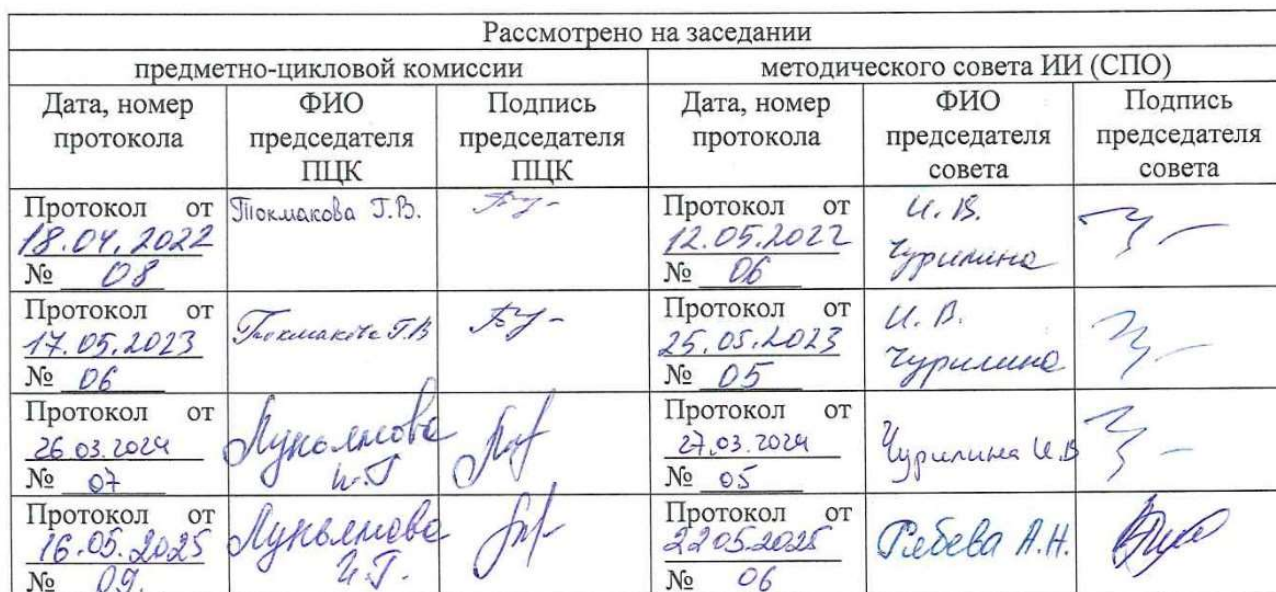 Рассмотрено на заседании
предметно-цикловой комиссии
методического совета ИИ (СПО)
Дата, номер
протокола
ФИО
председателя
ПЦК
Подпись
председателя
ПЦК
Дата, номер
протокола
ФИО
председателя
совета
Подпись
председателя
совета
Протокол от
18.04.2022
№ 08
Токмакова Г.В.
Протокол от
12.05.2022
№ 06
И.В.
Чурилина
Протокол от
17.05.2023
№ 06
Токмакова Г.В
Протокол от
25.05.2023
№ 05
И.В.
Чурилина
Протокол от
26.03.2024
№ 07
Лукьянова
И.Г
Протокол от
27.03.2024
№ 05
Чурилина И.В
Протокол от
16.05.2025
№ 09.
Лукьянова
И.Г.
Протокол от
22.05.2025
№ 06
А.Н.